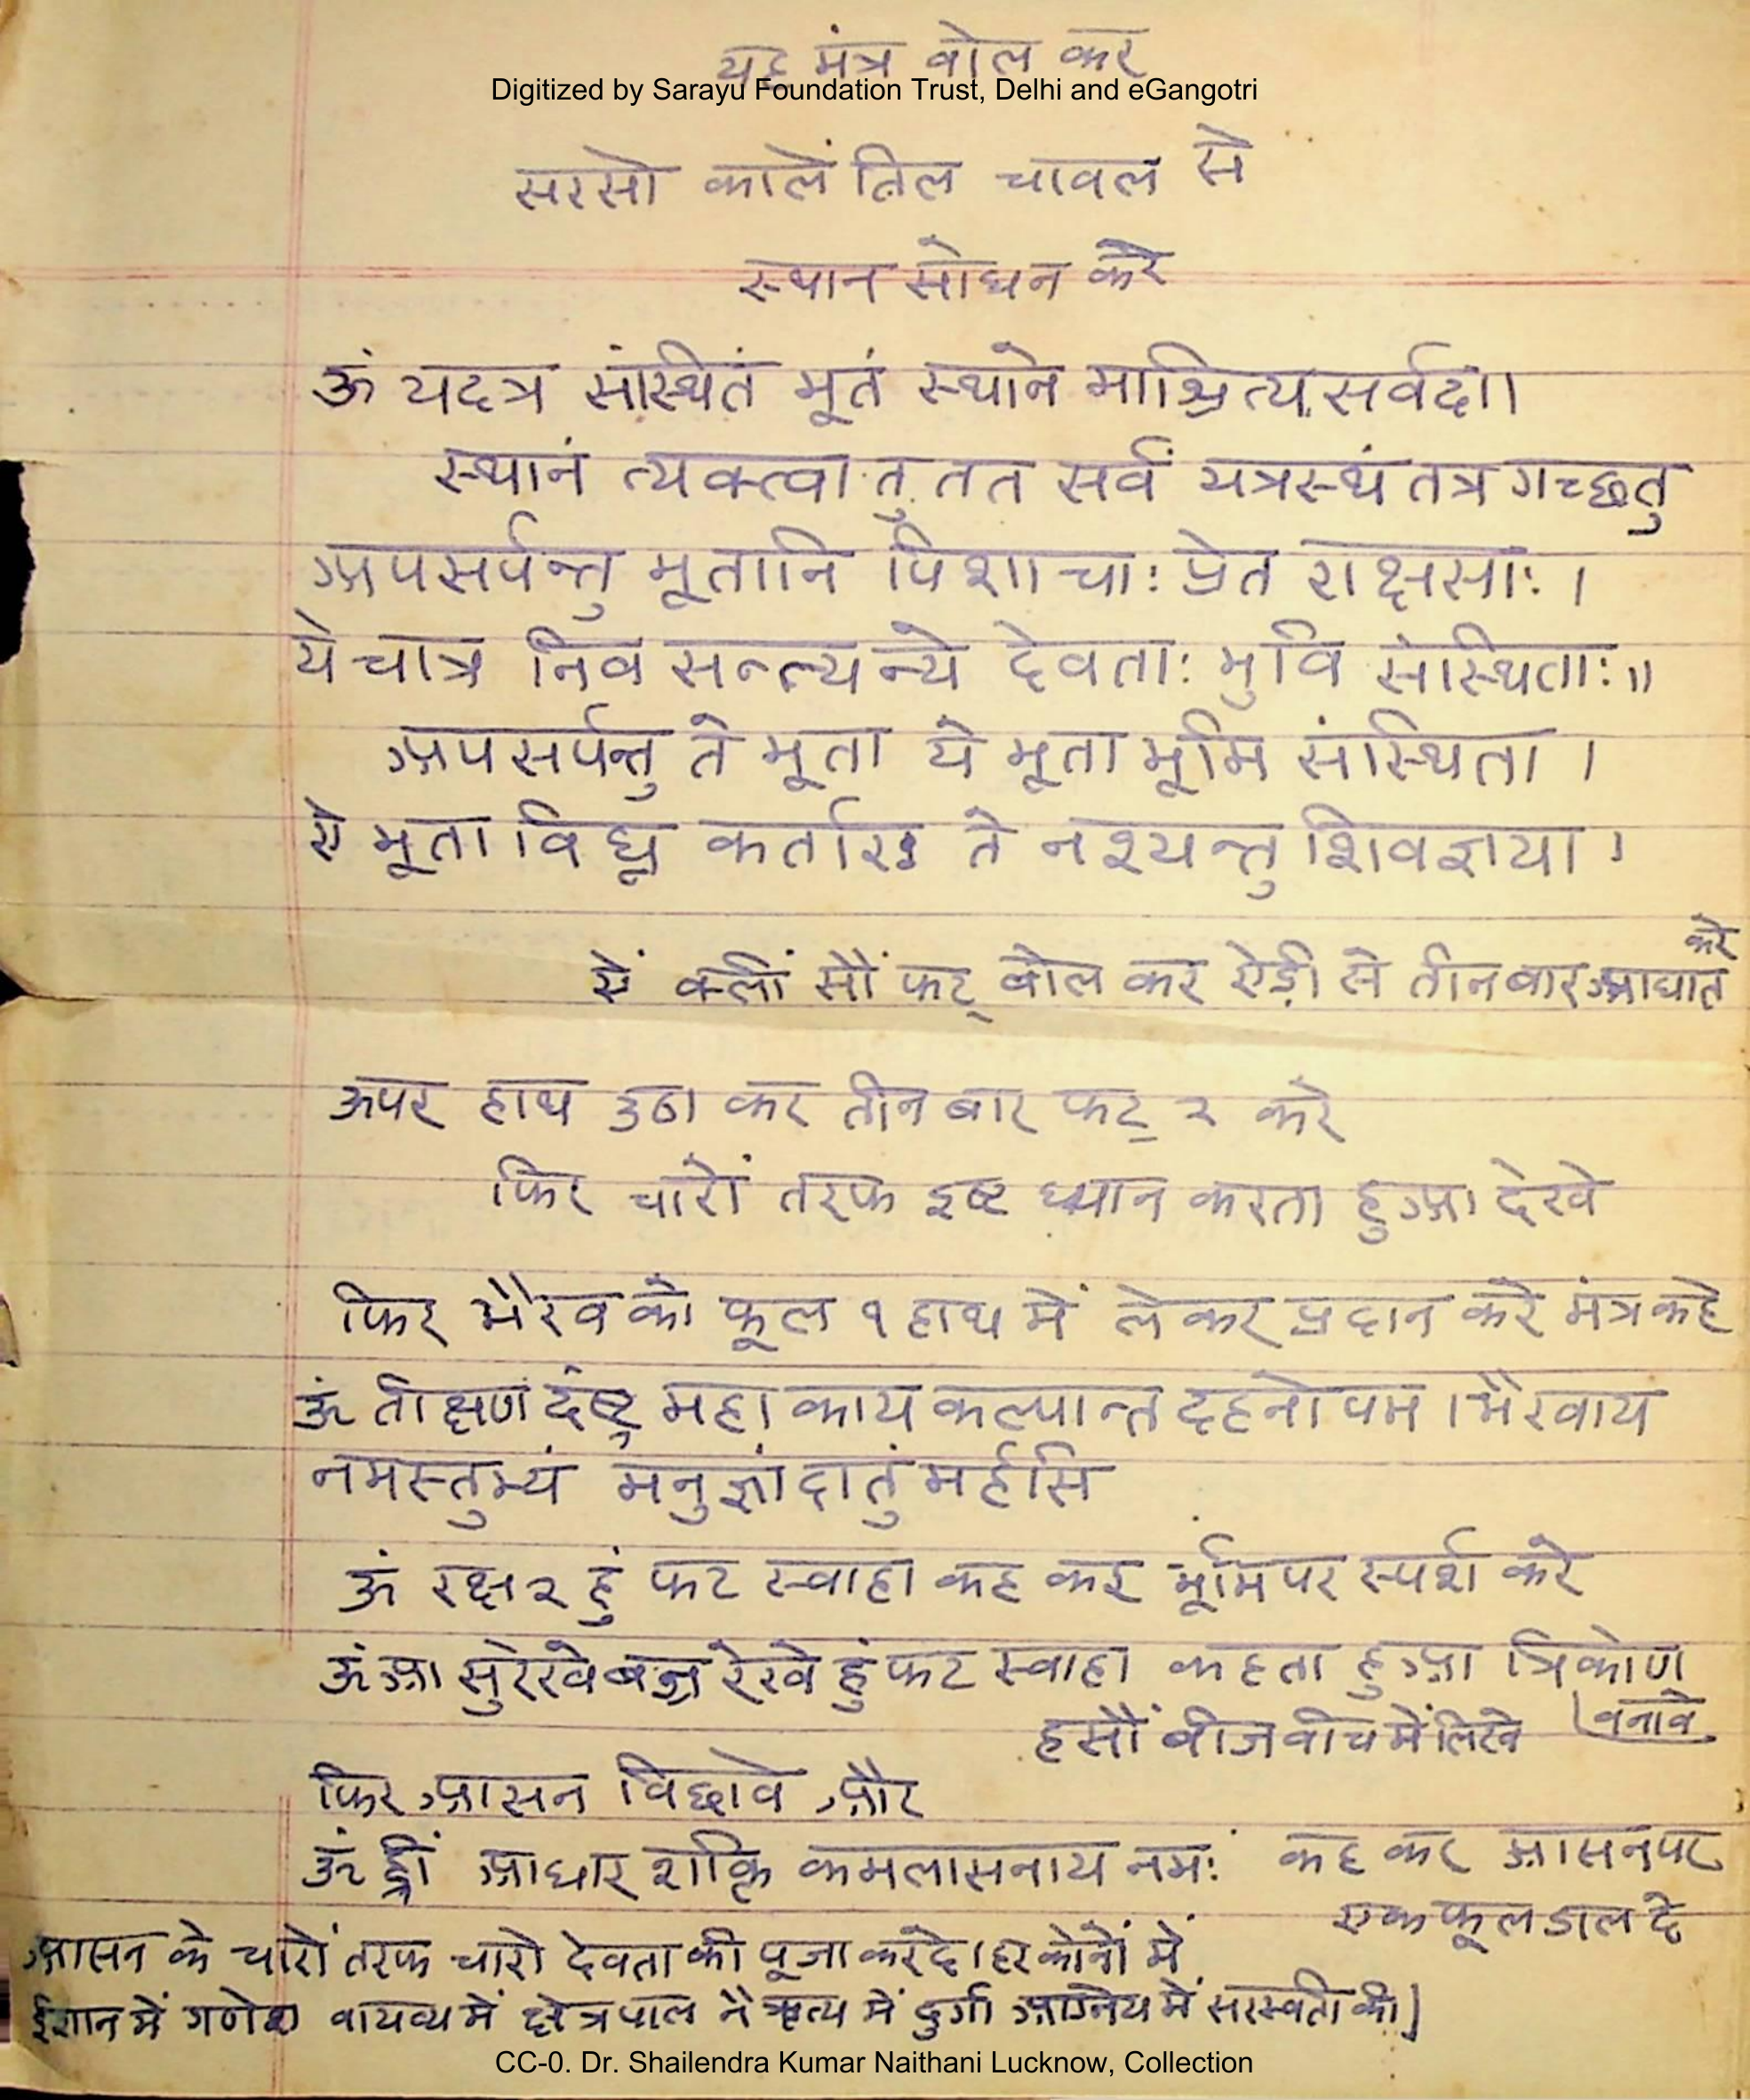 यह मंत्र वोल कर
Digitized by Sarayu Foundation Trust, Delhi and eGangotri
सरसो काले तिल चावल से
स्थान सोधन करे
ॐ यदत्र संस्थितं भूतं स्थाने माश्रित्य सर्वदा।
स्थानं त्यक्त्वा तु तत सर्वं यत्रस्थं तत्र गच्छतु
अपसर्पन्तु भूतानि पिशाचाः प्रेत राक्षसाः ।
ये चात्र निव सन्त्यन्ये देवताः भुवि संस्थिताः॥
अपसर्पन्तु ते भूता ये भूता भूमि संस्थिता ।
ये भूता विघ्न कर्तारः ते नश्यन्तु शिवज्ञया ।
ऐं क्लीं सौं फट् बोल कर ऐड़ी से तीन बार आघात करे
ऊपर हाथ उठा कर तीन बार फट् २ करे
फिर चारों तरफ इष्ट ध्यान करता हुआ देखे
फिर भैरव को फूल १ हाथ में लेकर प्रदान करे मंत्र कहे
ॐ तीक्षण दंष्ट्र महा काय कल्पान्त दहनोपम । भैरवाय
नमस्तुभ्यं मनुज्ञां दातुं मर्हसि
ॐ रक्ष २ हुं फट स्वाहा कह कर भूमि पर स्पर्श करे
ॐ आ सुरेखे बज्र रेखे हुं फट स्वाहा कहता हुआ त्रिकोण
वनावे
हसौं बीज वीच में लिखे
फिर आसन विछावे और
ॐ ह्रीं आधार शक्ति कमलासनाय नमः कह कर आसन पर
एक फूल डाल दे
आसन के चारों तरफ चारो देवता की पूजा करदे। हर कोनों में
ईशान में गणेश वायव्य में क्षेत्रपाल नैऋत्य में दुर्गा आग्नेय में सरस्वती की]
CC-0. Dr. Shailendra Kumar Naithani Lucknow, Collection